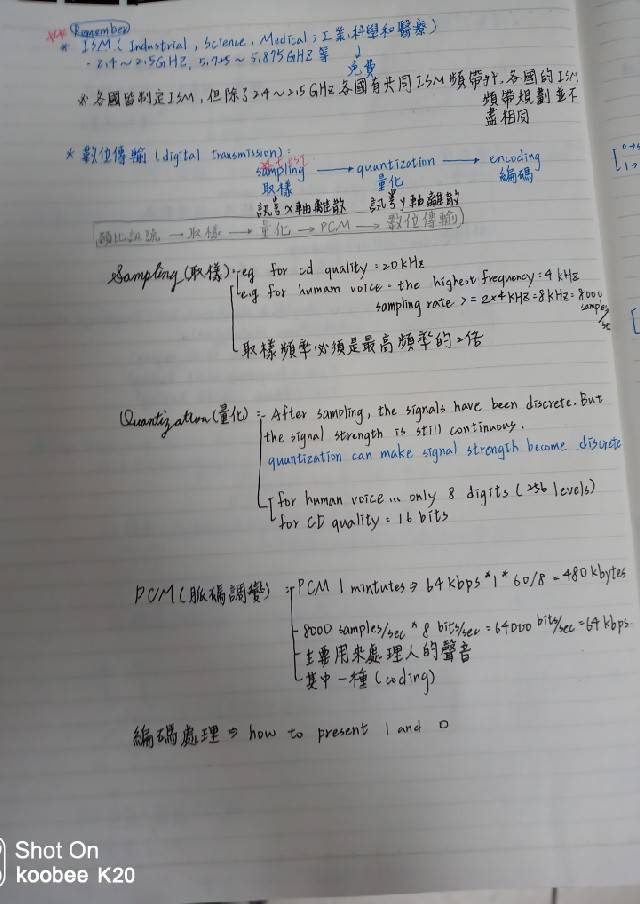 Remember
* ISM (Industrial, Science, Medical; 工業,科學和醫療)
- 2.4 ~ 2.5 GHZ, 5.725 ~ 5.875 GHZ 等
↓
免費
※ 各國皆制定ISM, 但除了2.4~2.5GHz 各國有共同ISM頻帶外, 各國的ISM
頻帶規劃並不
盡相同
* 數位傳輸 (digital transmission):
sampling → quantization → encoding
取樣 量化 編碼
訊號x軸離散 訊號y軸離散
類比訊號 → 取樣 → 量化 → PCM → 數位傳輸
Sampling (取樣): - eg for cd quality = 20 kHz
- eg for human voice - the highest frequency = 4 kHz
sampling rate >= 2x4kHz = 8kHz = 8000
samples/
sec
取樣頻率必須是最高頻率的2倍
Quantization (量化) :- After sampling, the signals have been discrete. But
the signal strength is still continuous.
quantization can make signal strength become discrete
for human voice ... only 8 digits (256 levels)
for CD quality: 16 bits
PCM (脈碼調變) : PCM 1 mintutes ⇒ 64 kbps * 1 * 60/8 = 480 kbytes
- 8000 samples/sec * 8 bits/sec = 64000 bits/sec = 64 kbps.
- 主要用來處理人的聲音
- 其中一種 (coding)
編碼處理 ⇒ how to present 1 and 0
Shot On
koobee K20